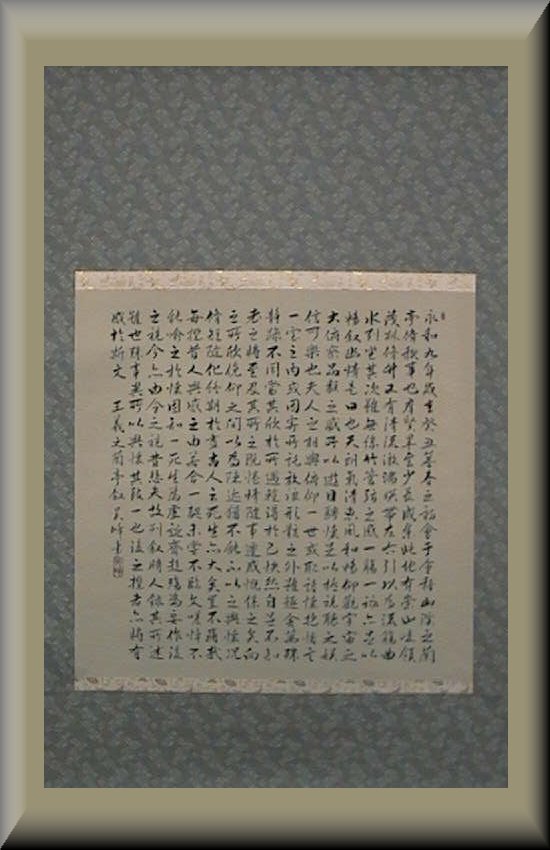 永和九年歲在癸丑暮春之初會于會稽山陰之蘭
亭脩稧事也群賢畢至少長咸集此地有崇山峻領
茂林脩竹又有清流激湍暎帶左右引以為流觴曲
水列坐其次雖無絲竹管弦之盛一觴一詠亦足以
暢敘幽情是日也天朗氣清惠風和暢仰觀宇宙之
大俯察品類之盛所以遊目騁懷足以極視聽之娛
信可樂也夫人之相與俯仰一世或取諸懷抱悟言
一室之內或因寄所託放浪形骸之外雖趣舍萬殊
靜躁不同當其欣於所遇暫得於己快然自足不知
老之將至及其所之既惓情隨事遷感慨係之矣向
之所欣俛仰之間以為陳迹猶不能不以之興懷況
脩短隨化終期於盡古人云死生亦大矣豈不痛哉
每攬昔人興感之由若合一契未嘗不臨文嗟悼不
能喻之於懷固知一死生為虛誕齊彭殤為妄作後
之視今亦由今之視昔悲夫故列敘時人錄其所述
雖世殊事異所以興懷其致一也後之攬者亦將有
感於斯文 王羲之蘭亭敘 峰書